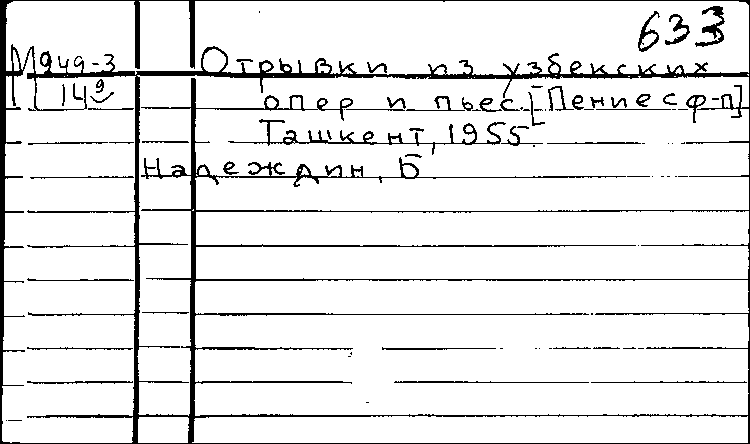 633
М949-3 Отрывки из узбекских
149 опер и пьес. [Пение с ф-п]
Ташкент, 1955
Надеждин, Б